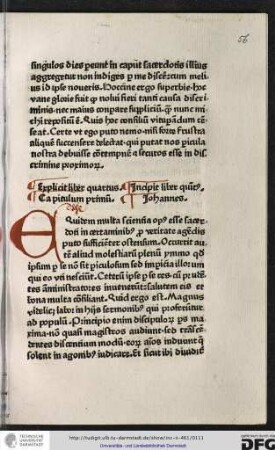 56
singulos dies peunt in caput sacerdotis illius
aggregetur non indiges ꝑ me discērum meli
us id ipse noueris. Hoccine ergo superbie hoc
vane glorie fuit ꝙ nolui fieri tanti causa discri
minis nec maius conpare supliciū. ꝙ nunc mi
chi repositū ē. Quis hoc consiliū vitupādum cē
seat. Certe vt ego puto nemo nisi forte frustra
aliquē succensere delectat. qui putat nos picula
nostra debuisse cōtempnē & secutos esse in dis
crimine proximorū.
Explicit liber quartus Incipit liber quītꝰ
Capitulum primū. Johannes.
EQuidem multa scientia opꝰ esse sacer
doti in certaminibꝰ ꝓ veritate agēdis
puto sufficienter ostensum. Occurrit aut
tē aliud molestiarū plenū ymmo qd
ipsum ꝑ se nō sit piculosum sed impicia illorum
qui eo vti nesciūt. Ceterū ipse ꝑ se res cū prudē
tes amministratores inuenerūt: salutem eis et
bona multa cōsiliant. Quid ergo est. Magnus
videlicꝫ labor in hijs sermonibꝰ qui proferūtur
ad populū. Principio enim discipulorū ps ma
xima nō quasi magistros audiunt sed trāscē
dentes discentium modū: eorū aīos induunt q
solent in agonibꝰ iudicare. Et sicut ibi diuidūt
TECHNISCHE
UNIVERSITÄT
DARMSTADT
http://tudigit.ulb.tu-darmstadt.de/show/inc-ii-461/0111
Universitäts- und Landesbibliothek Darmstadt
DFG